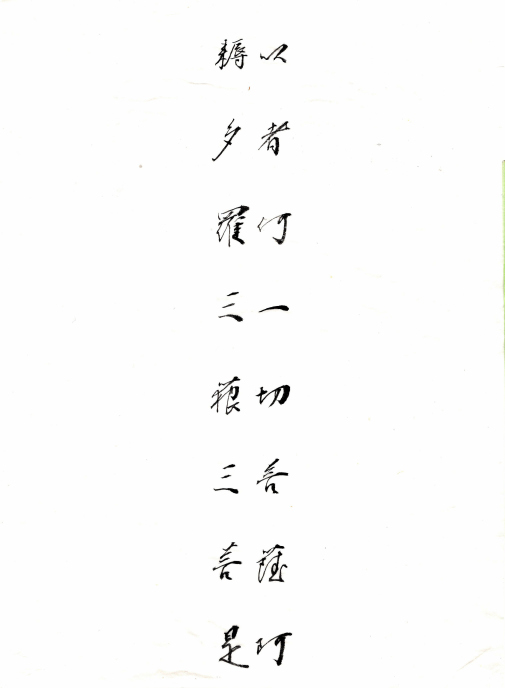 以者何一切菩薩阿
耨夕羅三藐三菩是